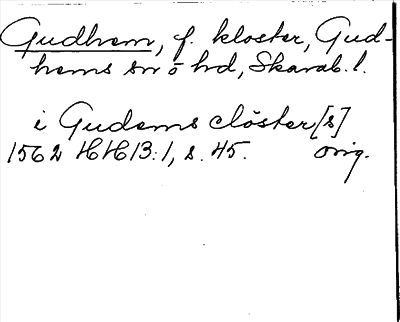 Gudhem, f. kloster, Gud-
hems sn o hd, Skarab. l.
i Gudems clöster [s]
1562 HH 13:1, s. 45. orig.